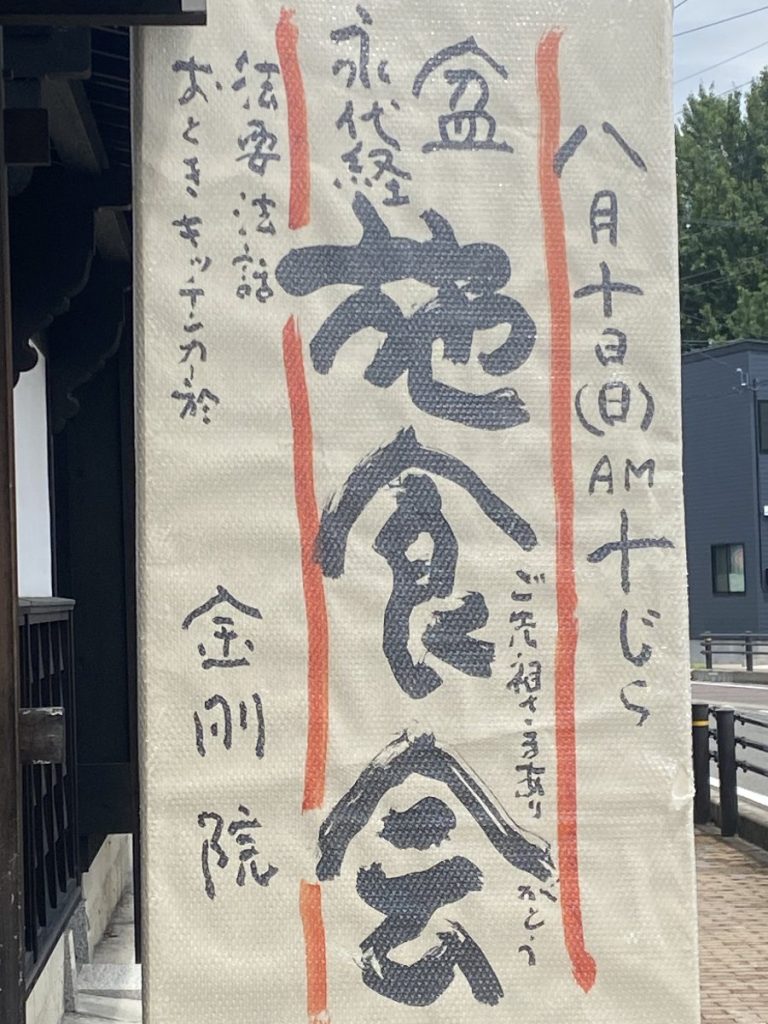 八月十日(日)AM十じら
盆
永代経
施食会
ご先祖さまありがとう
法要 法話
おとき・キッチンカー於
金剛院